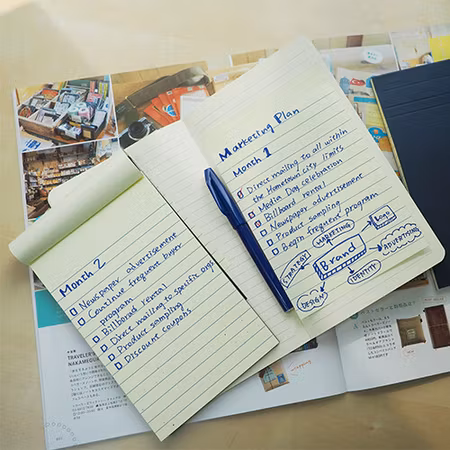 Month 2
Newspaper advertisement
Continue frequent buyer
program
Billboard rental
Direct mailing to specific orgs
Product sampling
Discount coupons
Marketing Plan
Month 1
Direct mailing to all within
the Hometown city limits
Media Day celebration
Billboard rental
Newspaper advertisement
Product sampling
Begin frequent program
STRATEGY
MARKETING
LOGO
Brand
ADVERTISING
IDENTITY
DESIGN
TRAVELER'S